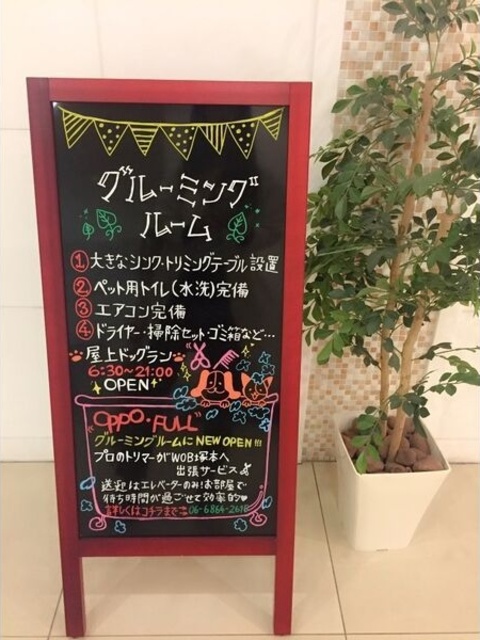 グルーミング
ルーム
① 大きなシンク・トリミングテーブル設置
② ペット用トイレ(水洗)完備
③ エアコン完備
④ ドライヤー・掃除セット・ゴミ箱など…
屋上ドッグラン
6:30~21:00
OPEN
"OPPO・FULL"
グルーミングルームに NEW OPEN!!!
プロのトリマーがWOB塚本へ
出張サービス
送迎はエレベーターのみ!お部屋で
待ち時間が過ごせて効率的♡
詳しくはコチラまで